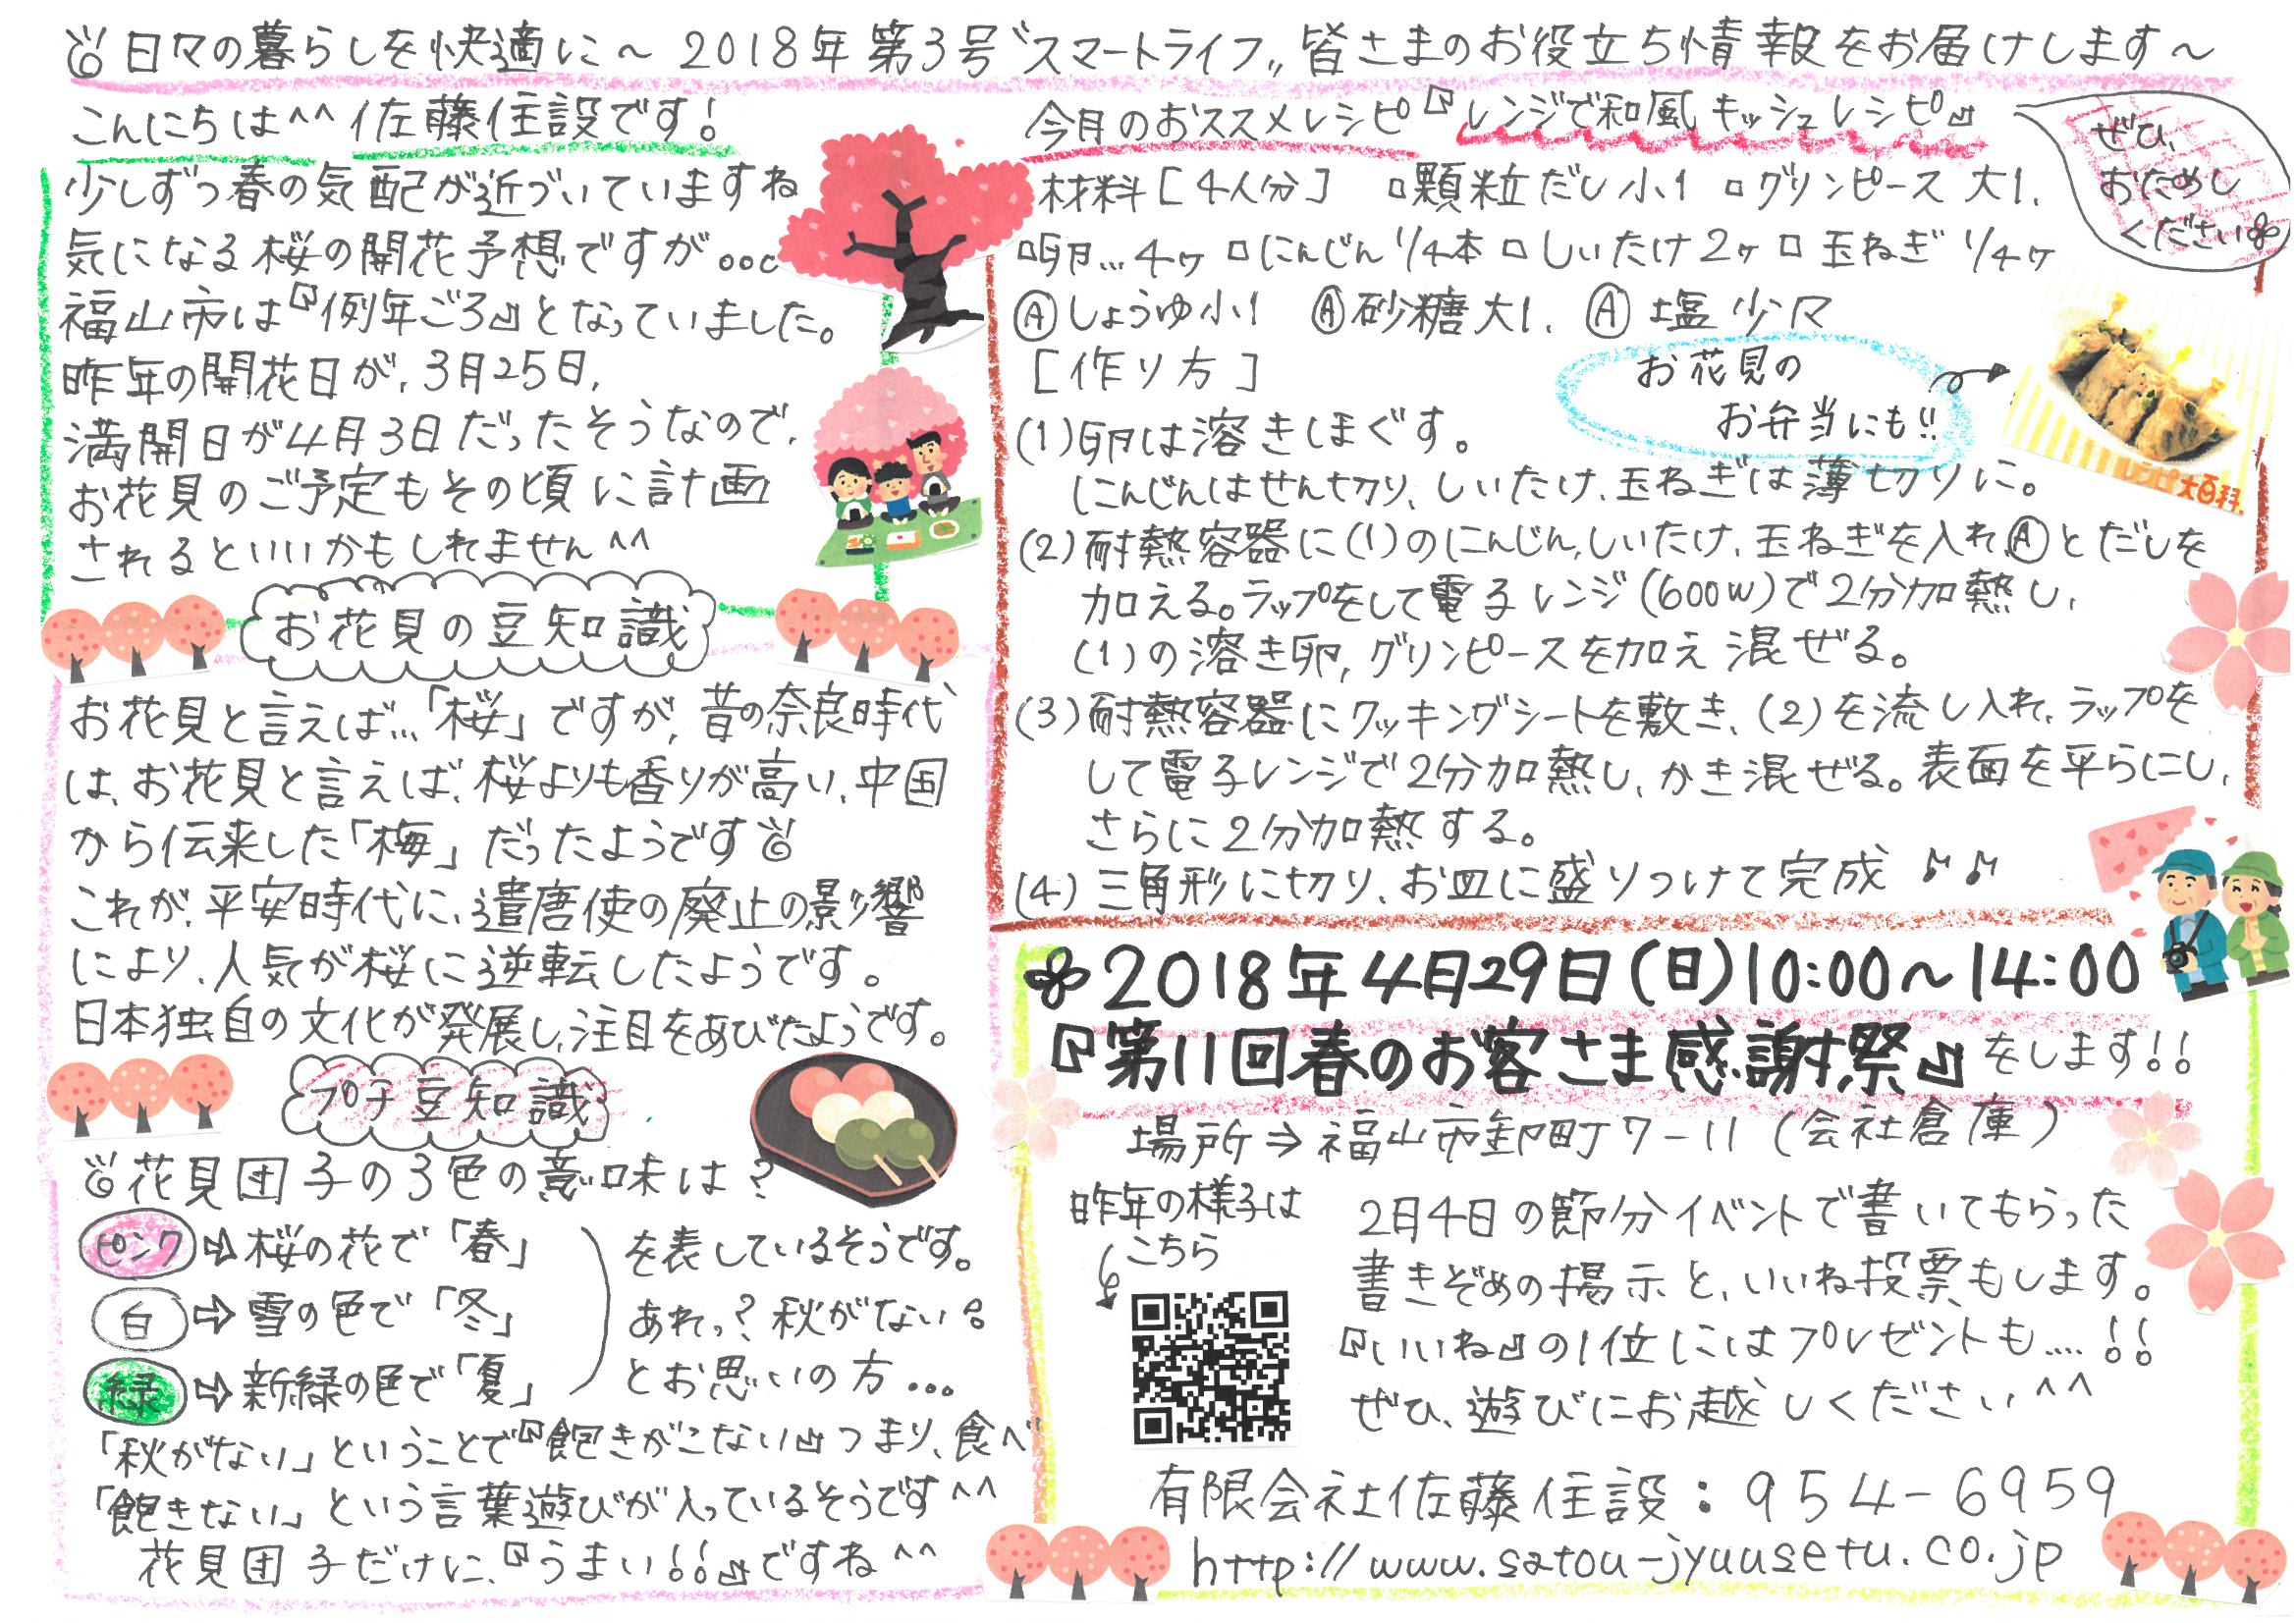 日々の暮らしを快適に～2018年第3号〝スマートライフ〟皆さまのお役立ち情報をお届けします～
こんにちは^^ 佐藤住設です！
少しずつ春の気配が近づいていますね
気になる桜の開花予想ですが...
福山市は『例年ごろ』となっていました。
昨年の開花日が、3月25日、
満開日が4月3日だったそうなので、
お花見のご予定もその頃に計画
されるといいかもしれません^^
お花見の豆知識
お花見と言えば...「桜」ですが、昔の奈良時代
は、お花見と言えば、桜よりも香りが高い、中国
から伝来した「梅」だったようです
これが、平安時代に、遣唐使の廃止の影響
により、人気が桜に逆転したようです。
日本独自の文化が発展し、注目をあびたようです。
プチ豆知識
花見団子の3色の意味は？
ピンク⇨桜の花で「春」
白⇨雪の色で「冬」
緑⇨新緑の色で「夏」
を表しているそうです。
あれっ？秋がない？
とお思いの方...
「秋がない」ということで『飽きがこない』つまり、食べ
「飽きない」という言葉遊びが入っているそうです^^
花見団子だけに、『うまい!!』ですね^^
今月のおススメレシピ『レンジで和風キッシュレシピ』
ぜひ、
おためし
ください
材料[4人分] □顆粒だし小1 □グリンピース 大1.
□卵...4ヶ □にんじん1/4本 □しいたけ2ヶ □玉ねぎ1/4ヶ
Ⓐしょうゆ小1 Ⓐ砂糖大1. Ⓐ塩少々
[作り方]
お花見の
お弁当にも!!
レシピ大百科
(1)卵は溶きほぐす。
にんじんはせん切り、しいたけ、玉ねぎは薄切りに。
(2)耐熱容器に(1)のにんじん,しいたけ、玉ねぎを入れ、Ⓐとだしを
加える。ラップをして電子レンジ(600W)で2分加熱し、
(1)の溶き卵,グリンピースを加え混ぜる。
(3)耐熱容器にクッキングシートを敷き、(2)を流し入れ、ラップを
して電子レンジで2分加熱し、かき混ぜる。表面を平らにし、
さらに2分加熱する。
(4)三角形に切り、お皿に盛りつけて完成♪♪
2018年4月29日(日)10:00～14:00
『第11回春のお客さま感謝祭』をします!!
場所⇒福山市卸町7-11(会社倉庫)
昨年の様子は
こちら
2月4日の節分イベントで書いてもらった
書きぞめの掲示と、いいね投票もします。
『いいね』の1位にはプレゼントも....!!
ぜひ、遊びにお越しください^^
有限会社佐藤住設：954-6959
http://www.satou-jyuusetu.co.jp